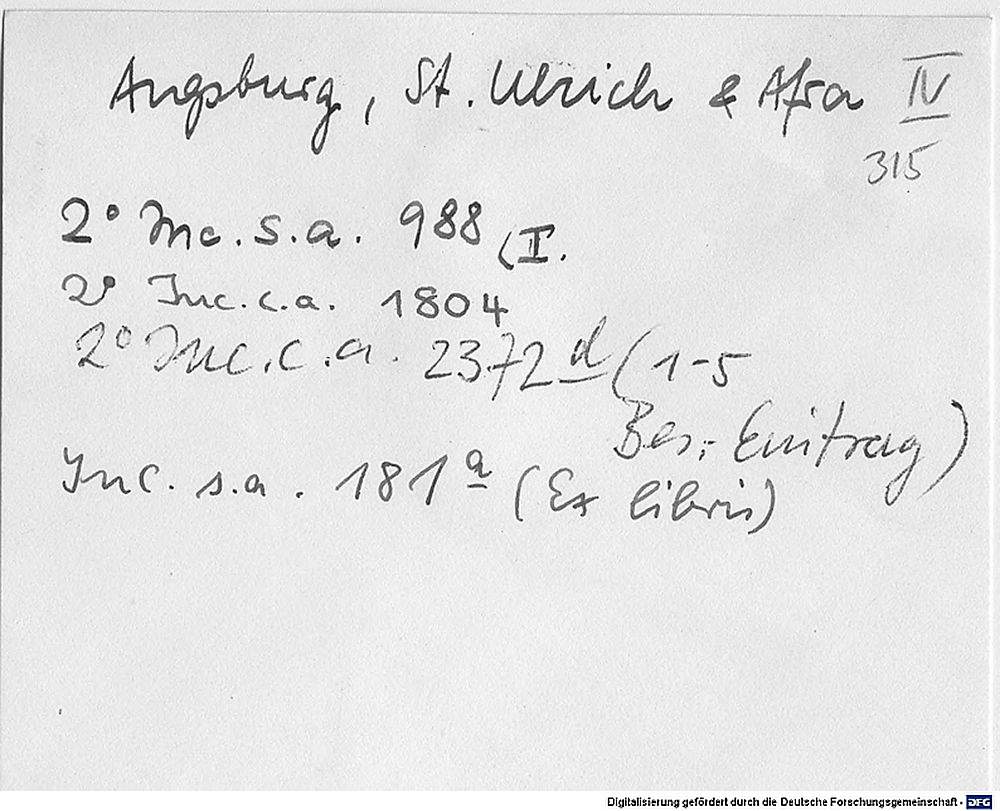 Augsburg, St. Ulrich & Afra IV
315
2° Inc. s. a. 988 (I.
2° Inc. c. a. 1804
2° Inc. c. a. 2372 d (1-5
Bes.: Eintrag)
Inc. s. a. 181 a (Ex libris)
Digitalisierung gefördert durch die Deutsche Forschungsgemeinschaft - DFG